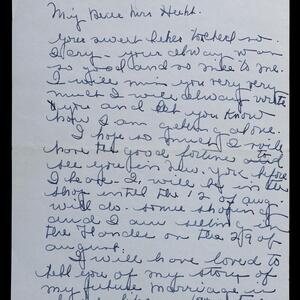 My Dear Mrs Hecht.
your sweet
I cry - your alway was
so good and so nice to me.
I will miss you very very
much I will alway write
you and let you know
how I am getting alone.
I hope so much I will
have the good fortune to
see you in New. York before
I leave. I will be in the
shop until the 12 of aug.
will do. some shoping
and I am
the Flandes on the 29 of
august.
I will have loved to
tell you of my story of
my future marriage in